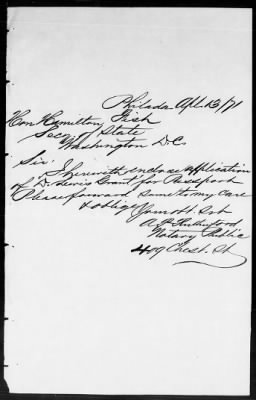 Philada Apl. 13/71
Hon Hamilton Fish
Secy of State
Washington D.C.
Sir.
I herewith enclose application
of D. Lewis Grant for Passport
Please forward same to my care
& oblige Your obt. Svt
A P Rutherford
Notary Public
409 Chest. St